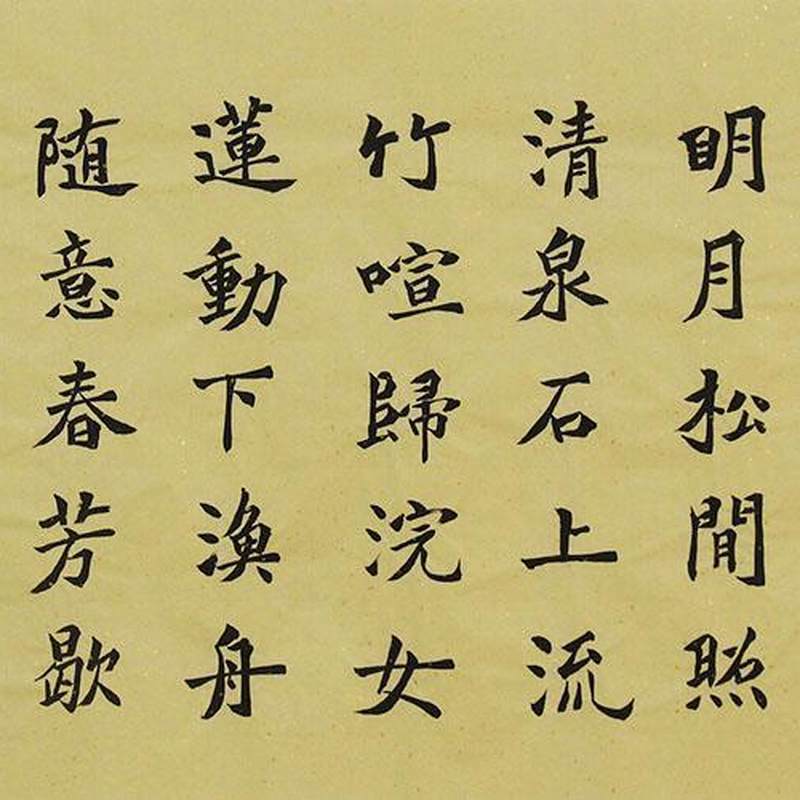 明月松間照
清泉石上流
竹喧歸浣女
蓮動下漁舟
随意春芳歇